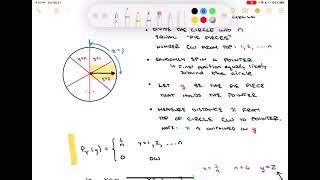 CIRCLE
- DIVIDE THE CIRCLE INTO n
EQUAL "PIE PIECES"
NUMBER CW FROM TOP: 1, 2, ... n
- RANDOMLY SPIN A POINTER
- FINAL POSITION EQUALLY LIKELY
AROUND THE CIRCLE
- LET y BE THE PIE PIECE
THAT HOLDS THE POINTER
- MEASURE DISTANCE x FROM
TOP OF CIRCLE CW TO POINTER.
NOTE: x IS CONTAINED IN y
x = ?
y=1
y=2
P_Y(y) = { 1/n y=1,2,...n
0 OW
n=6 y=2